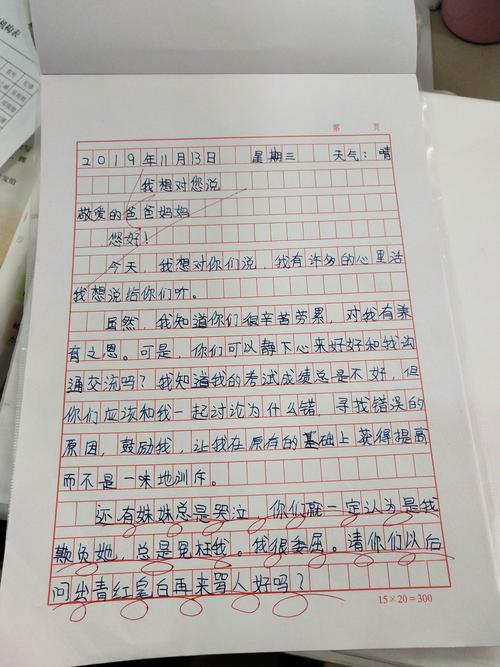 第 页
2019年11月13日 星期三 天气：晴
我想对您说
敬爱的爸爸妈妈
您好！
今天，我想对你们说，我有许多的心里话
我想说给你们听。
虽然，我知道你们很辛苦劳累，对我有养
育之恩。可是，你们可以静下心来好好和我沟
通交流吗？我知道我的考试成绩总是不好，但
你们应该和我一起讨论为什么错，寻找错误的
原因，鼓励我，让我在原有的基础上获得提高
而不是一味地训斥。
还有妹妹总是哭泣，你们确一定认为是我
欺负她，总是冤枉我。我很委屈。请你们以后
问出青红皂白再来骂人好吗？
15×20=300